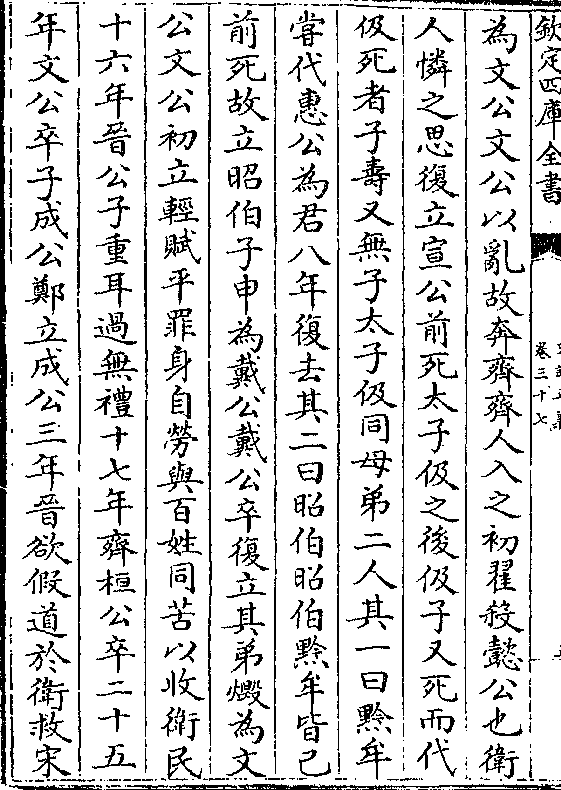 欽定四庫全書
卷三十七
為文公文公以亂故奔齊齊人入之初翟殺懿公也衛
人憐之思復立宣公前死太子伋之後伋子又死而代
伋死者子壽又無子太子伋同母弟二人其一曰黔牟
嘗代惠公為君八年復去其二曰昭伯昭伯黔牟皆已
前死故立昭伯子申為戴公戴公卒復立其弟燬為文
公文公初立輕賦平罪身自勞與百姓同苦以收衛民
十六年晉公子重耳過無禮十七年齊桓公卒二十五
年文公卒子成公鄭立成公三年晉欲假道於衛救宋